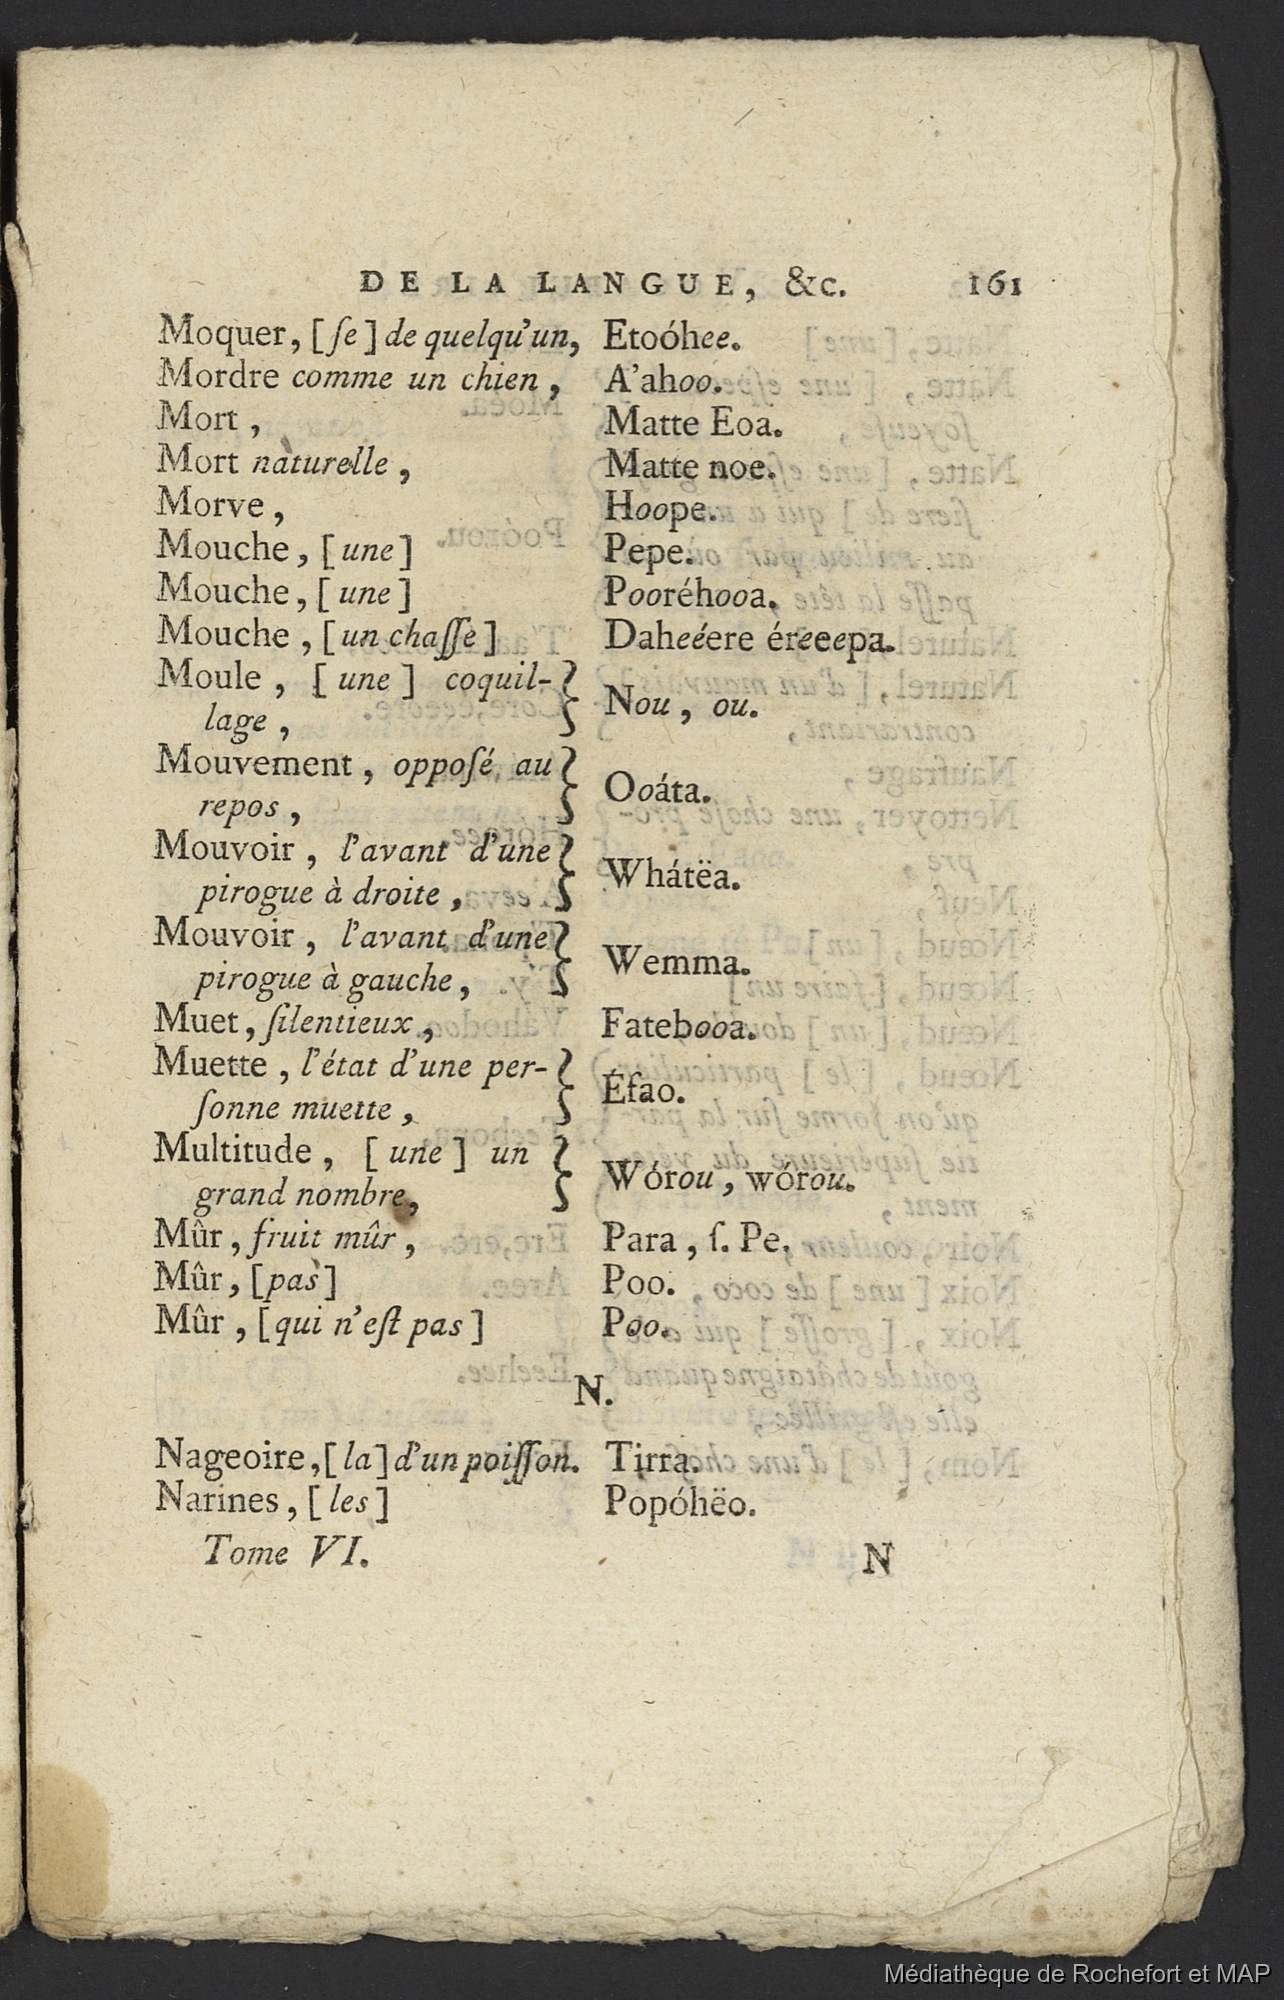 DE LA LANGUE, &c. 161
Moquer, [ſe] de quelqu'un, Etoóhee.
Mordre comme un chien, A'ahoo.
Mort, Matte Eoa.
Mort naturelle, Matte noe.
Morve, Hoope.
Mouche, [une] Pepe.
Mouche, [une] Pooréhooa.
Mouche, [un chaſſe] Daheéere éreeeepa.
Moule, [une] coquil-
lage, Nou, ou.
Mouvement, oppoſé au
repos, Ooáta.
Mouvoir, l'avant d'une
pirogue à droite, Whátëa.
Mouvoir, l'avant d'une
pirogue à gauche, Wemma.
Muet, ſilentieux, Fatebooa.
Muette, l'état d'une per-
ſonne muette, Éfao.
Multitude, [une] un
grand nombre, Wórou, wórou.
Mûr, fruit mûr, Para, ſ. Pe.
Mûr, [pas] Poo.
Mûr, [qui n'eſt pas] Poo.
N.
Nageoire, [la] d'un poiſſon. Tirra.
Narines, [les] Popóhëo.
Tome VI. N
Médiathèque de Rochefort et MAP